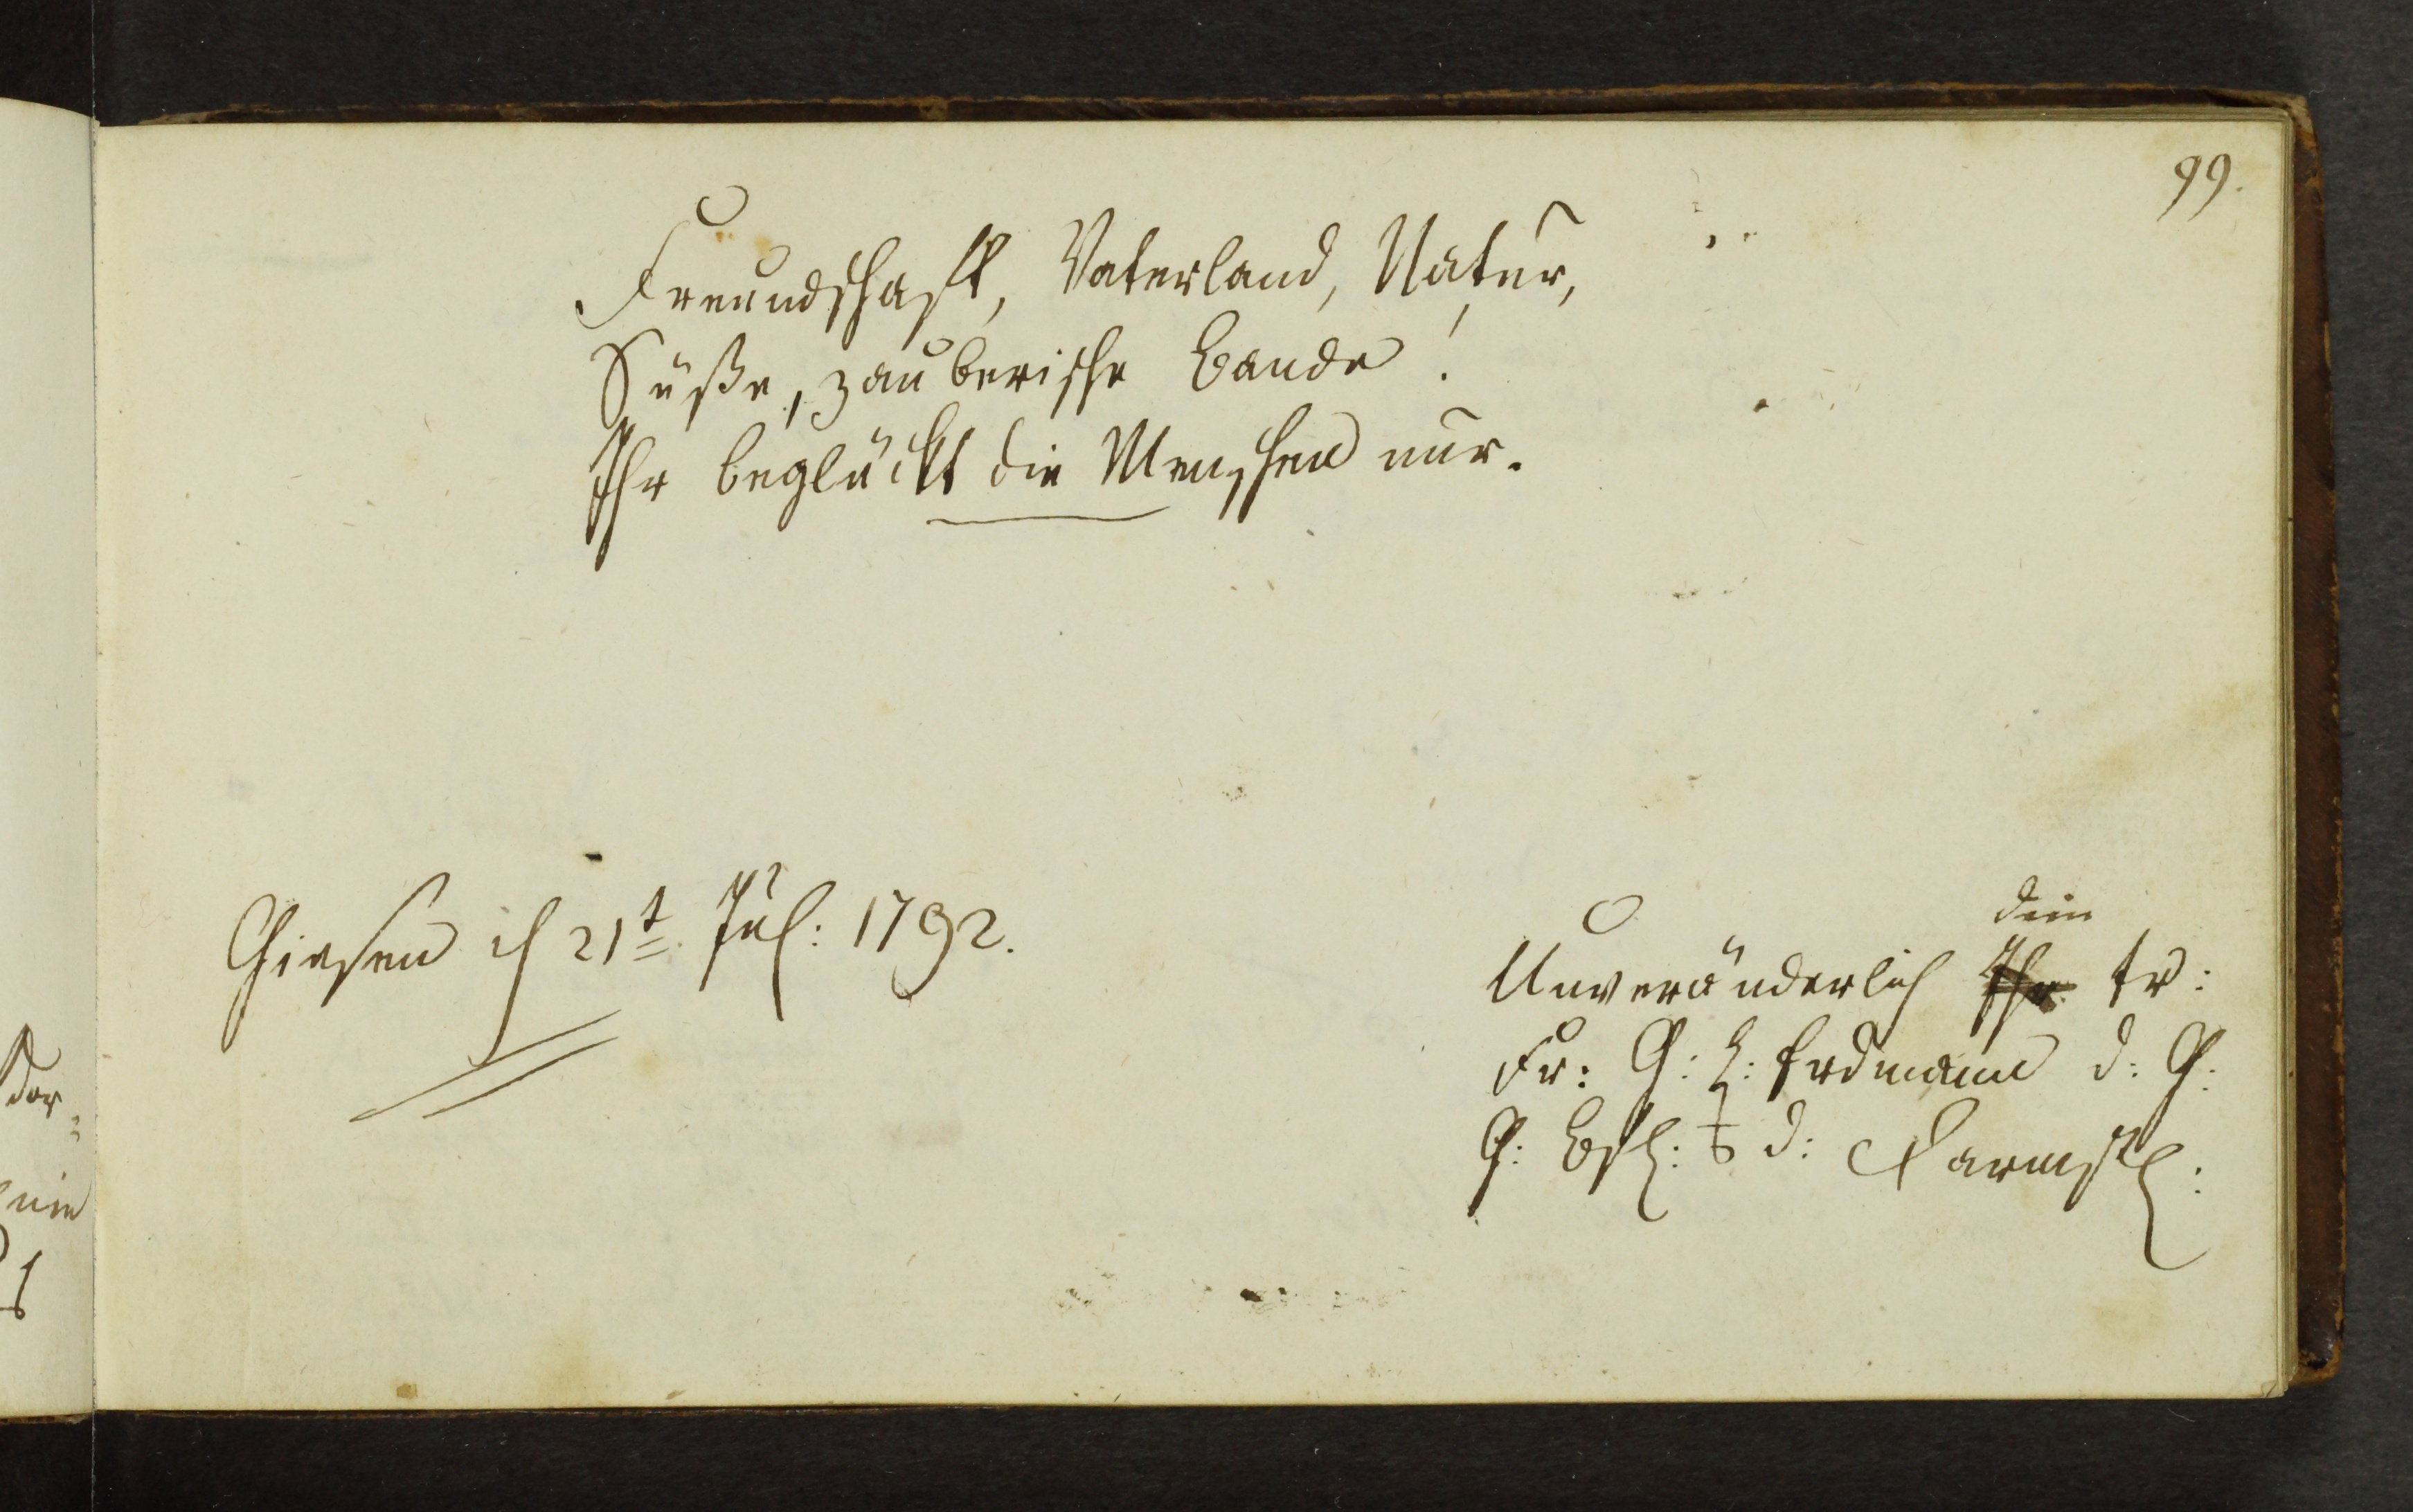 99.
Freundschaft, Vaterland, Natur,
Süße, zauberische Bande!
Ihr beglückt die Menschen nur.
Giesen d 21t Jul: 1792.
dein
Unveränderlich Ihr tr:
Fr: G: L: Erdmann d: G:
G: Bfl: d: Darmst: